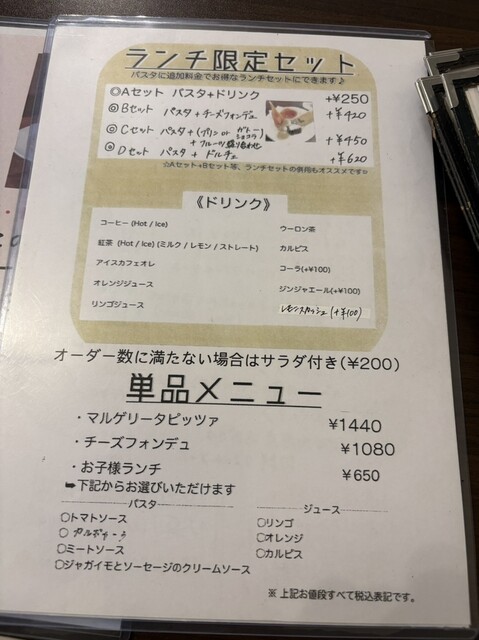 ランチ限定セット
パスタに追加料金でお得なランチセットにできます♪
◎Aセット パスタ+ドリンク +¥250
◎Bセット パスタ+チーズフォンデュ +¥420
◎Cセット パスタ+(プリン or ガトーショコラ)+フルーツ盛り合わせ +¥450
◎Dセット パスタ + ドルチェ +¥620
☆Aセット+Bセット等、ランチセットの併用もオススメです☺
《ドリンク》
コーヒー (Hot / Ice) ウーロン茶
紅茶 (Hot / Ice) (ミルク / レモン / ストレート) カルピス
アイスカフェオレ コーラ(+¥100)
オレンジジュース ジンジャエール(+¥100)
リンゴジュース レモンスカッシュ(+¥100)
オーダー数に満たない場合はサラダ付き(¥200)
単品メニュー
・マルゲリータピッツァ ¥1440
・チーズフォンデュ ¥1080
・お子様ランチ ¥650
➡下記からお選びいただけます
パスタ ジュース
〇トマトソース 〇リンゴ
〇カルボナーラ 〇オレンジ
〇ミートソース 〇カルピス
〇ジャガイモとソーセージのクリームソース
※ 上記お値段すべて税込表記です。